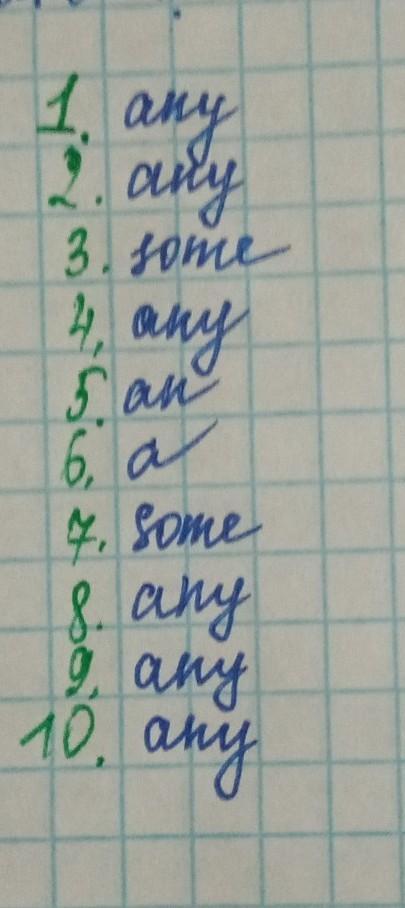 1. any
2. any
3. some
4. any
5. an
6. a
7. some
8. any
9. any
10. any